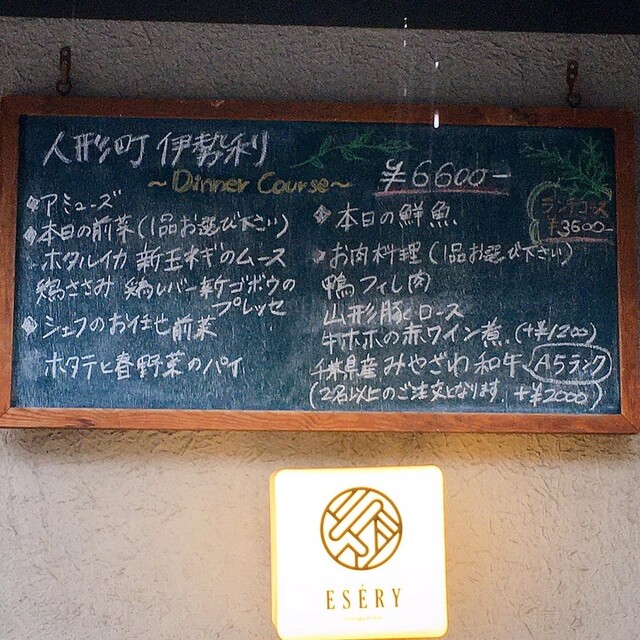 人形町 伊勢利
~Dinner Course~
¥6600-
ランチコース
¥3600-
◆アミューズ
◆本日の前菜(1品お選び下さい)
ホタルイカ 新玉ネギのムース
鶏ささみ 鶏レバー 新ゴボウの
プレッセ
◆シェフのお任せ前菜
ホタテと春野菜のパイ
◆本日の鮮魚
◆お肉料理(1品お選び下さい)
鴨フィレ肉
山形豚ロース
牛ホホの赤ワイン煮(+¥1200)
千葉県産みやざわ和牛 A5ランク
(2名以上のご注文となります +¥2000)
ESÉRY